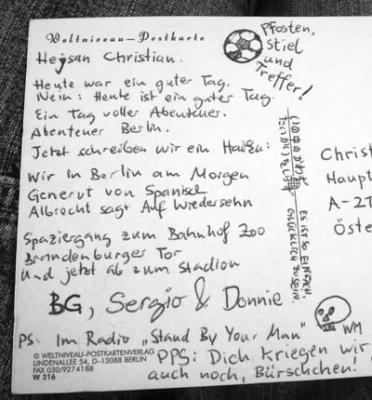 Weltniveau-Postkarte
Hejsan Christian.
Heute war ein guter Tag.
Nein: Heute ist ein guter Tag.
Ein Tag voller Abenteuer.
Abenteuer Berlin.
Jetzt schreiben wir ein Haiku:
Wir in Berlin am Morgen
Genervt von Spanisch
Albrecht sagt Auf Wiedersehn
Spaziergang zum Bahnhof Zoo
Brandenburger Tor
Und jetzt ab zum Stadion
BG, Sergio & Donnie
PS: Im Radio „Stand By Your Man"
© WELTNIVEAU-POSTKARTENVERLAG
LINDENALLEE 54, D-13088 BERLIN
FAX 030/9274188
W 216
PPS: Dich kriegen wir
auch noch, Bürschchen!
Pfosten,
Stiel
und
Treffer!
ES IST SO EINFACH,
GLÜCKLICH ZU SEIN.
WM
Christ
Haupt
A-27
Öste